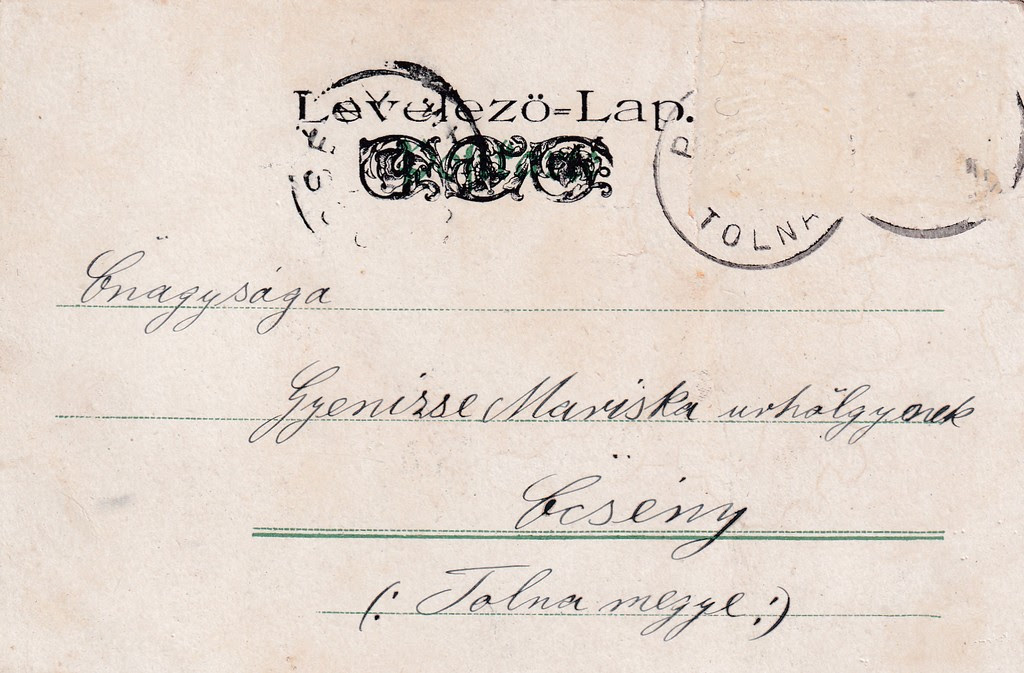 Levelező=Lap.
TOLNA
Őnagysága
Gyenizse Mariska urhölgynek
Őcsény
(: Tolna megye :)